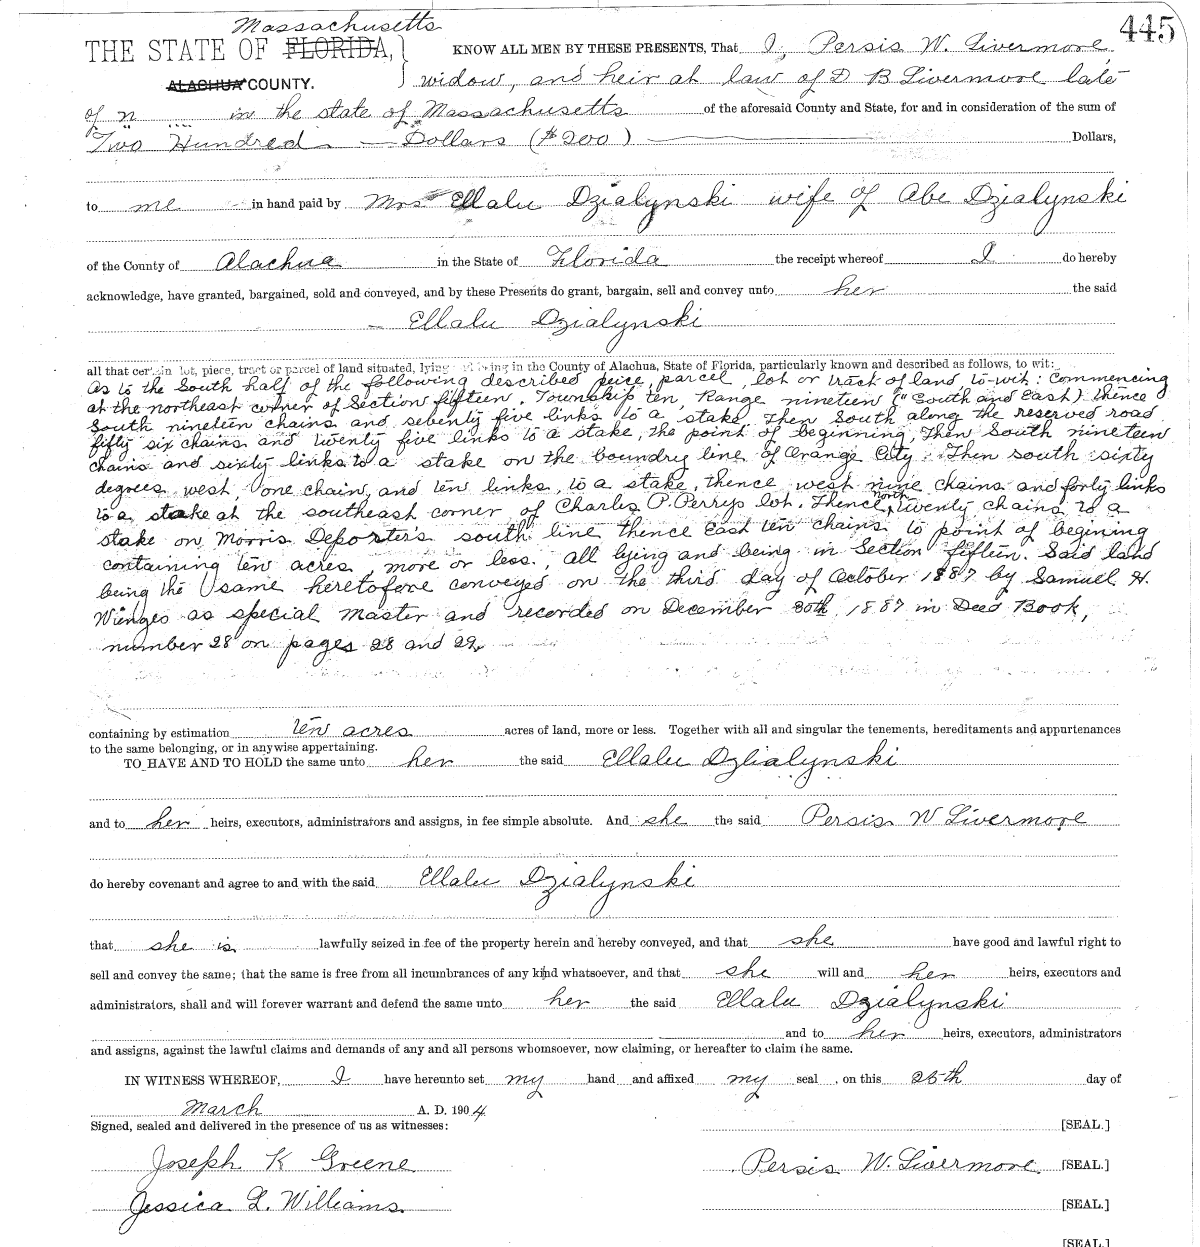 445
Massachusetts
THE STATE OF FLORIDA,
ALACHUA COUNTY.
KNOW ALL MEN BY THESE PRESENTS, That I, Persis W. Livermore,
widow, and heir at law of D B Livermore late
of n in the state of Massachusetts of the aforesaid County and State, for and in consideration of the sum of
Two Hundred Dollars ($200) Dollars,
to me in hand paid by Mrs Ellalu Dzialynski wife of Abe Dzialynski
of the County of Alachua in the State of Florida the receipt whereof I do hereby
acknowledge, have granted, bargained, sold and conveyed, and by these Presents do grant, bargain, sell and convey unto her the said
Ellalu Dzialynski
all that certain lot, piece, tract or parcel of land situated, lying being in the County of Alachua, State of Florida, particularly known and described as follows, to wit:
As to the South half of the following described peice, parcel, lot or tract of land, to-wit: Commencing
at the northeast corner of Section fifteen, Township ten, Range nineteen (South and East) thence
South nineteen chains and seventy five links to a stake, Then South along the reserved road
fifty six chains and twenty five links to a stake, the point of beginning, Then South nineteen
chains and sixty links to a stake on the boundry line of Orange City. Then south sixty
degrees west, one chain, and ten links, to a stake, thence west nine chains and forty links
to a stake at the southeast corner of Charles P. Perrys lot. Thence north twenty chains to a
stake on Morris Deporter's south line thence East ten chains to point of begining
containing ten acres, more or less, all lying and being in Section fifteen. Said land
being the same heretofore conveyed on the third day of October 1887 by Samuel H.
Wienges as special Master and recorded on December 30th, 1887 in Deed Book,
number 28 on pages 28 and 29,
containing by estimation ten acres acres of land, more or less. Together with all and singular the tenements, hereditaments and appurtenances
to the same belonging, or in anywise appertaining.
TO HAVE AND TO HOLD the same unto her the said Ellalu Dzlialynski
and to her heirs, executors, administrators and assigns, in fee simple absolute. And she the said Persis W Livermore
do hereby covenant and agree to and with the said Ellalu Dzialynski
that she is lawfully seized in fee of the property herein and hereby conveyed, and that she have good and lawful right to
sell and convey the same; that the same is free from all incumbrances of any kind whatsoever, and that she will and her heirs, executors and
administrators, shall and will forever warrant and defend the same unto her the said Ellalu Dzialynski
and to her heirs, executors, administrators
and assigns, against the lawful claims and demands of any and all persons whomsoever, now claiming, or hereafter to claim the same.
IN WITNESS WHEREOF, I have hereunto set my hand and affixed my seal, on this 26th day of
March A. D. 1904
Signed, sealed and delivered in the presence of us as witnesses: [SEAL.]
Joseph K Greene Persis W. Livermore [SEAL.]
Jessica L. Williams. [SEAL.]
[SEAL.]